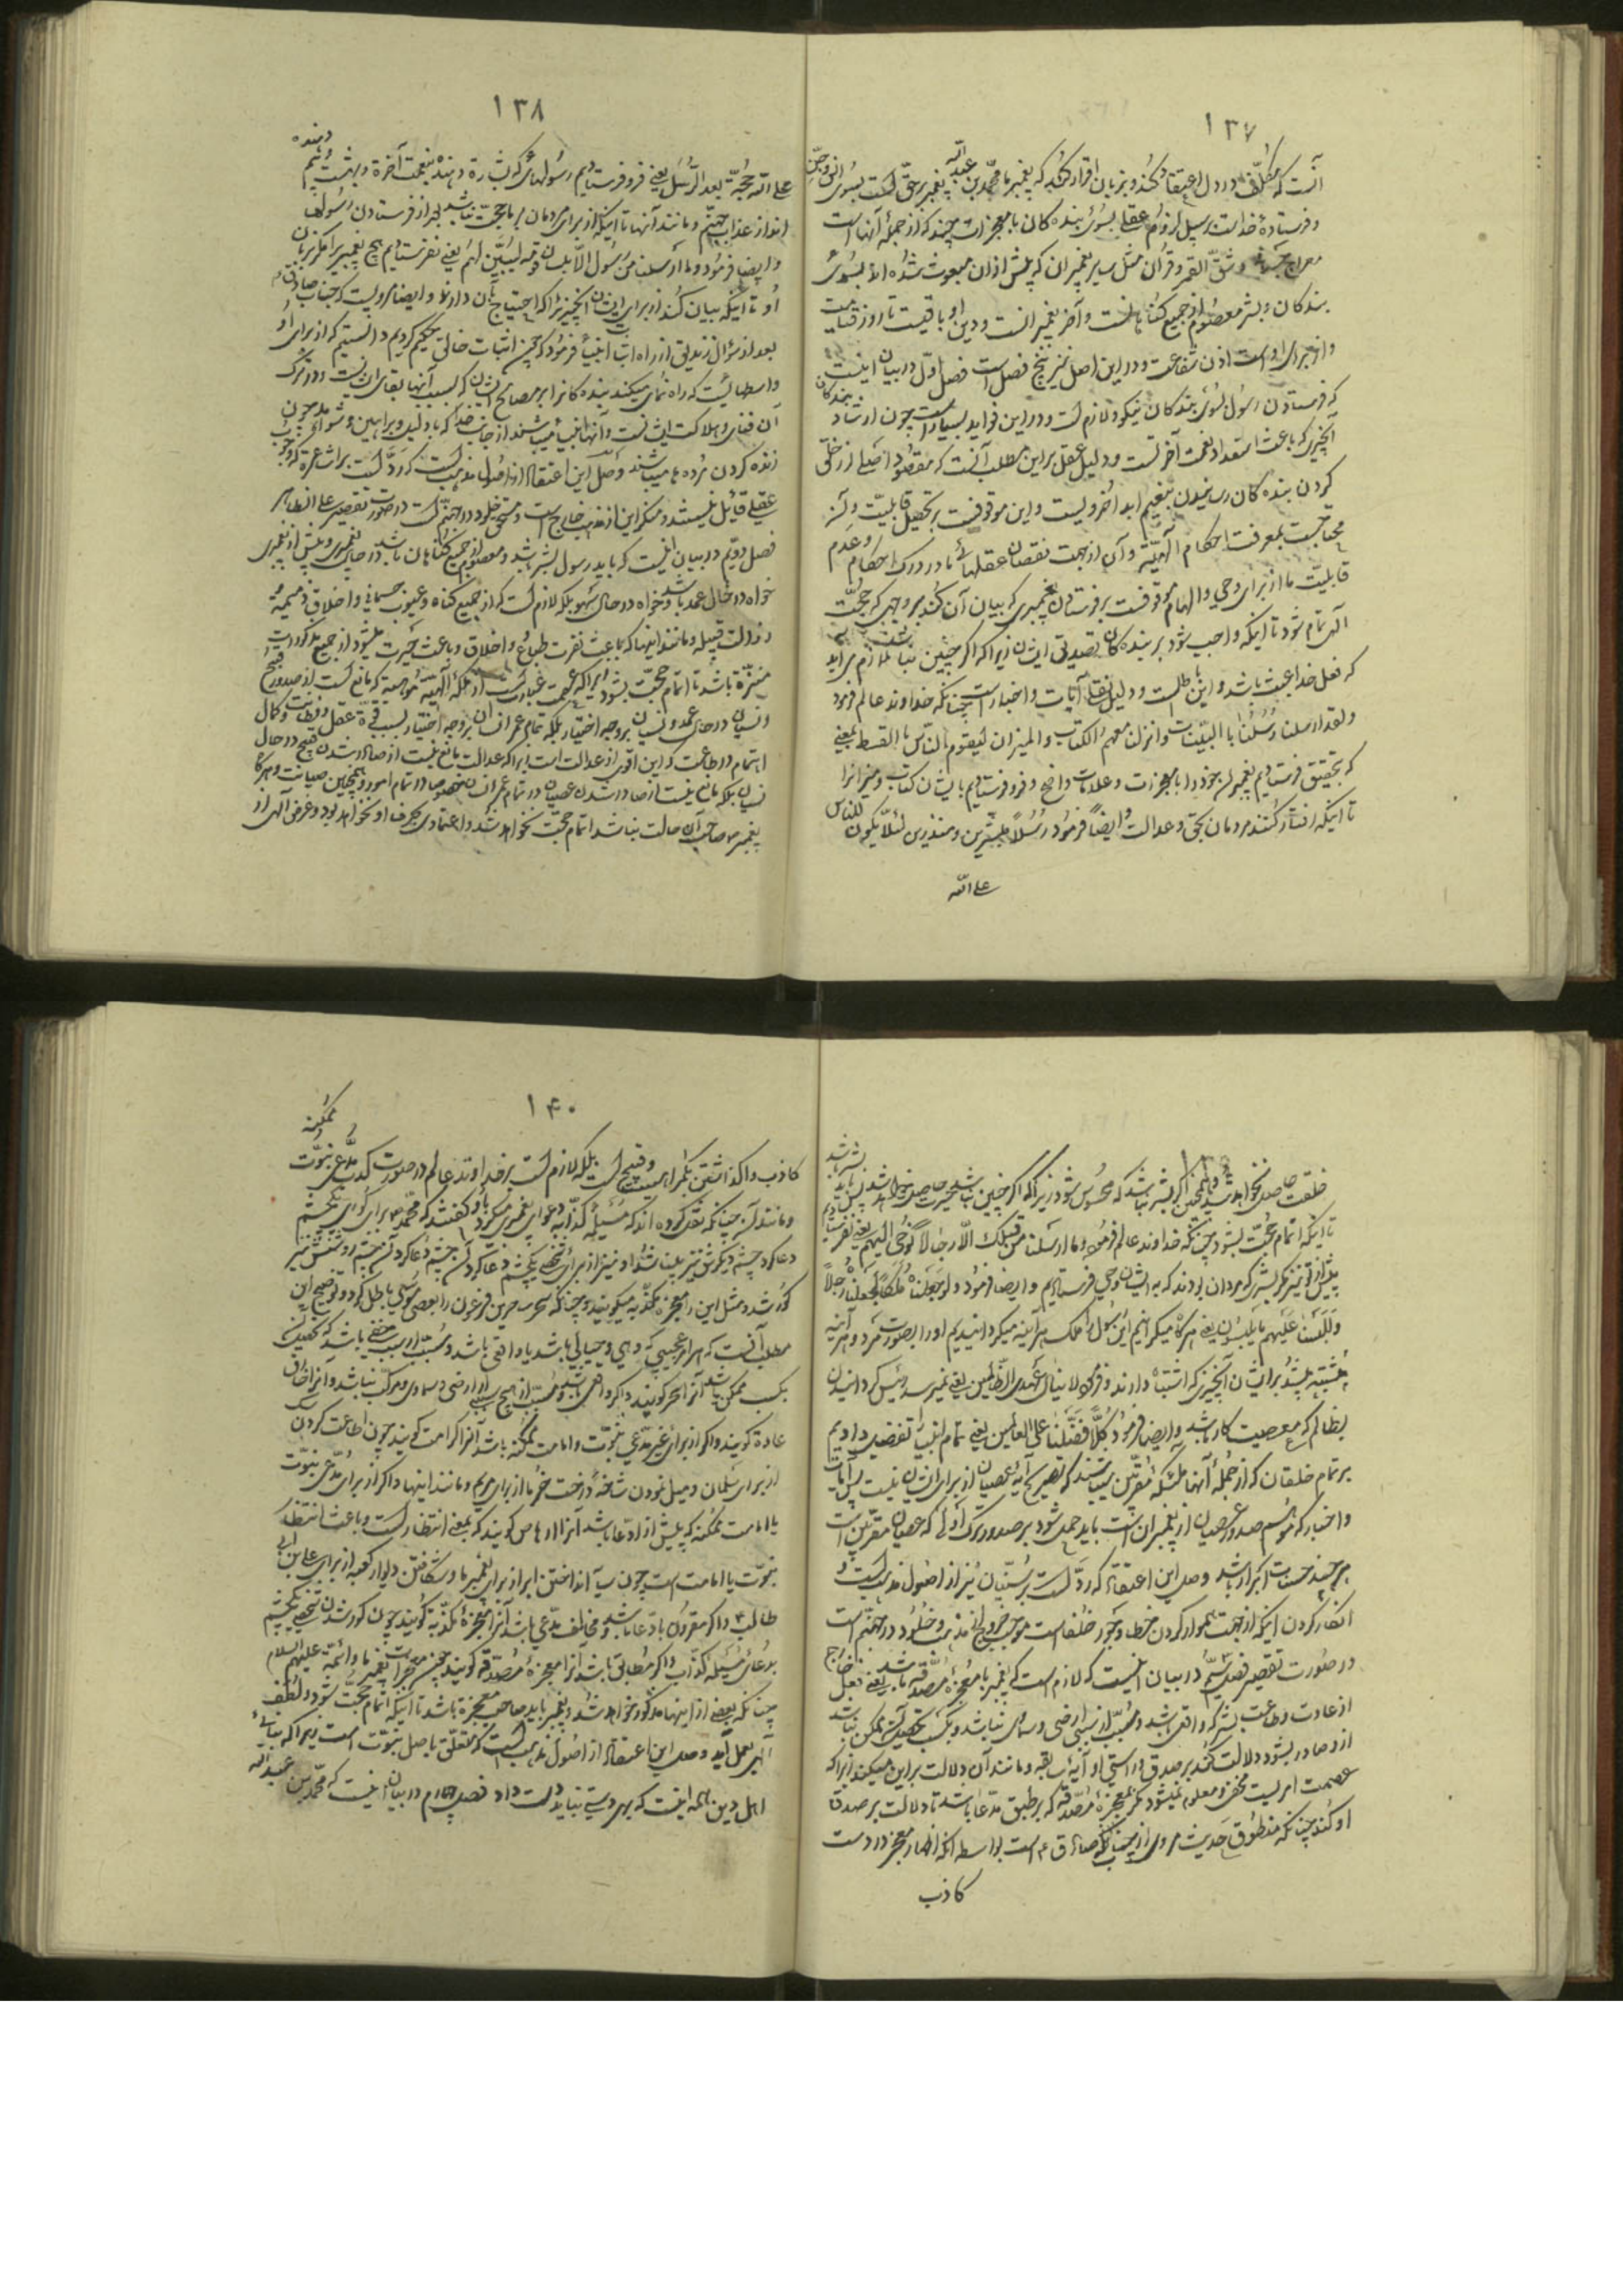 ۱۳۷
آنست که مکلّف در دل اعتقاد کند و بزبان اقرار کند که پیغمبر ما محمّد بن عبد اللّه پیغمبر برحقّ است بسوی انس و جنّ
و فرستادهٔ خداست برسبیل لزوم عقلی بسوی بنده کان با معجزات چند که از جملهٔ آنها است
معراج جسمانی و شقّ القمر و قرآن مثل سایر پیغمبران که پیش از آن مبعوث شده اند بسوی
بندکان و بشر معصوم از جمیع کناهانست و آخر پیغمبرانست و دین او باقیست تا روز قیامت
و از برای او است اذن شفاعت و در این اصل نیز پنج فصل است فصل اوّل در بیان اینست
که فرستادن رسول بسوی بندکان نیکو و لازم است و در این فواید بسیار است چون ارشاد بندکان
آنچیزی که باعث استعداد نعمت آخرتست و دلیل عقل بر این مطلب آنست که مقصود اصلی از خلق
کردن بنده کان رسانیدن بنعیم ابد اخرویست و این موقوفست بر تحصیل قابلیّت و آن نیز
محتاجست بمعرفت احکام الهیّه و آن از جهت نقصان عقلهای ما در درک احکام و عدم
قابلیّت ما از برای وحی و الهام موقوفست بر فرستادن پیغمبری که بیان آن کند بر وجهی که حجّت
الهی تمام شود تا اینکه واجب شود بر بنده کان تصدیق ایشان زیرا که اکر چنین نباشد لازم می آید
که فعل خدا عبث باشد و این باطلست و دلیل نقلی آیات و اخبار است چنانکه خداوند عالم فرمود
ولقد ارسلنا رسلنا بالبیّنات وانزلنا معهم الکتاب والمیزان لیقوم النّاس بالقسط یعنی
که بتحقیق فرستادیم پیغمبران خود را با معجزات و علامات واضح و فرو فرستادیم با ایشان کتاب و میزانرا
تا اینکه رفتار کنند مردمان بحقّ و عدالت و ایضاً فرمود رسلاً مبشّرین ومنذرین لئلاّ یکون للنّاس
علی اللّه
۱۳۸
علی اللّه حجّة بعد الرّسل یعنی فرو فرستادیم رسولهائی که بشارت دهنده بنعمت آخرة و بهشت و بیم دهنده
اند از عذاب جهنّم و مانند آنها تا اینکه از برای مردمان بر ما حجّت نباشد بعد از فرستادن رسولها
و ایضا فرمود وما ارسلنا من رسول الاّ بلسان قومه لیبیّن لهم یعنی نفرستادیم هیچ پیغمبر را مکر بزبان
او تا اینکه بیان کند از برای ایشان آنچیزی را که احتیاج بآن دارند و ایضا مرویست که جناب صادق ع
بعد از سؤال زندیق از راه اثبات انبیاء فرمود که چون اثبات خالق حکیم کردیم دانستیم که از برای او
واسطهائیست که راه نمائی میکنند بنده کانرا بر مصالح ایشان که بسبب آنها بقای ایشانست و در ترک
آن فنای و هلاکت ایشانست و آنها انبیاء میباشند از جانب خدا که با دلیل و براهین و شواهد چون
زنده کردن مُرده ها میباشند و اصل این اعتقاد از اصول مذهب است که ردّ است بر اشاعره که بوجوب
عقلی قائل نیستند و منکر این از مذهب خارج است و مستحقّ خلود در جهنّم است در صورت تقصیر علی الظاهر
فصل دویّم در بیان اینست که باید رسول بشر باشد و معصوم از جمیع کناهان باشد در حال پیغمبری و پیش از پیغمبری
خواه در حال عمد باشد و خواه در حال سهو بلکه لازم است که از جمیع کناه و عیوب جسمانی و اخلاق ذمیمه
رذالت قبیله و مانند اینها که باعث نفرت طباع و اخلاق و باعث حیرت میشود از جمیع مذکورات
منزّه باشد تا اتمام حجّت بشود زیرا که عصمت عبارتست از ملکهٔ الهیّهٔ موهبیه که مانع است از صدور قبیح
و نسیان در حال عمد و نسیان بر وجه اختیار بلکه تمام عمر انسان بر وجه اختیار بسبب قوّة عقل و فطانت و کمال
اهتمام در طاعت و این اقوی از عدالت است زیرا که عدالت مانع نیست از صادر شدن قبیح در حال
نسیان بلکه مانع نیست از صادر شدن عصیان در تمام عمر انسان خصوصا در تمام امور و همچنین صیانت و هرکاه
پیغمبر صاحب آن حالت نباشد اتمام حجّت نخواهد شد و اعتمادی بحرف او نخواهد بود و غرض الهی از
۱۳۹
خلقت حاصل نخواهد شد و همچنین اکر بشر نباشد که محسوس شود زیرا که اکر چنین نباشد حیرت حاصل خواهد شد پس باید بشر باشد
تا اینکه اتمام حجّت بشود چنانکه خداوند عالم فرمود وما ارسلنا من قبلک الاّ رجالاً نوحی الیهم یعنی نفرستادیم
پیش از تو نیز مکر بشری که مردان بودند که به ایشان وحی فرستادیم و ایضا فرمود ولو جعلناه ملکاً لجعلناه رجلاً
وللبسنا علیهم ما یلبسون یعنی هرکاه میکردانیدیم این رسول را ملک هر آینه میکردانیدیم او را بصورت مرد و هر آینه
مشتبه میشد بر ایشان آنچیزی که اشتباه دارند و فرمود لا ینال عهدی الظّالمین یعنی نمیرسد رئیس کردانیدن
بظالم که معصیت کار باشد و ایضا فرمود کلاًّ فضّلنا علی العالمین یعنی تمام انبیاء را تفضیل دادیم
بر تمام خلقان که از جملهٔ آنها ملئکهٔ مقرّبین میباشند که بصریح آیهٔ عصیان از برای ایشان نیست پس آیات
و اخبار که موهم صدور عصیان از پیغمبرانست باید حمل شود بر صدور ترک اولی که عصیان مقرّبین است
هر چند حسنات ابرار باشد و اصل این اعتقاد که ردّ است بر سنّیان نیز از اصول مذهب است و
انکار کردن اینکه از جهت هموار کردن خطا و جور خلفا است موجب خروج از مذهب و خلود در جهنّم است
در صورت تقصیر فصل سیّم در بیان اینست که لازم است که پیغمبر با معجزهٔ مصدّقه باشد یعنی فعل خارج
از عادت و طاعت بشر که واقعی باشد و مسبّب از سبب ارضی و سماوی نباشد و بکسب تحصیل آن ممکن نباشد
از او صادر بشود و دلالت کند بر صدق و راستی او آیهٔ سابقه و مانند آن دلالت بر این میکند زیرا که
عصمت امریست مخفی و معلوم نمیشود مکر بمعجزهٔ مصدّقه که بر طبق مدّعا باشد تا دلالت بر صدق
او کند چنانکه منطوق حدیث مروی از جناب صادق ع است بواسطه آنکه اظهار معجز در دست
کاذب
۱۴۰
کاذب و واکذاشتن بکمراهیست و قبیح است بلکه لازم است بر خداوند عالم در صورت کذب مدّعی نبوّت تکذیب
و مانند آن چنانکه نقل کرده اند که مُسیلمهٔ کذّاب دعوای پیغمبری میکرد باو کفتند که محمّد ص برای کور یکچشم
دعا کرد چشم دیکرش نیز بینا شد او نیز از برای شخص یکچشم دعا کرد آن چشم روشنش نیز
کور شد و مثل این را معجزهٔ مکذّبه میکویند و چنانکه سحر ساحرین فرعون را عصای موسی باطل کرد و توضیح این
مطلب آنست که هر امر عجیبی که وهمی و خیالی باشد یا واقعی باشد و مسبّب از سبب مخفی باشد که تحصیلش
بکسب ممکن باشد آنرا سحر کویند و اکر واقعی باشد و مسبّب از هیچ سببی از ارضی و سماوی و مرکّب نباشد و آنرا خارق
عادة کویند و اکر از برای غیر مدّعی نبوّت و امامت ممکنه باشد آنرا کرامت کویند چون اطاعت کردن
از برای سلمان و میل نمودن شاخهٔ درخت خرما از برای مریم و مانند اینها و اکر از برای مدّعی نبوّت
یا امامت ممکنه که پیش از ادّعا باشد آنرا ارهاص کویند که بمعنی انتظار است و باعث انتظار
نبوّت یا امامت است چون سایه انداختن ابر از برای پیغمبر ما و شکافتن دیوار کعبه از برای علی بن ابی
طالب ع و اکر مقرون بادّعا باشد و مخالف مدّعی باشد آنرا معجزهٔ مکذّبه کویند چون کور شدن شخص یکچشم
بدعای مسیلمهٔ کذّاب و اکر مطابق باشد آنرا معجزهٔ مصدّقه کویند چون معجزات پیغمبر ما و ائمّه علیهم السلام
چنانکه بعضی از اینها مذکور خواهد شد و پیغمبر باید صاحب معجزه باشد تا اینکه اتمام حجّت بشود و لطف
الهی بعمل آید و اصل این اعتقاد از اصول مذهب است که متعلّق باصل نبوّت است زیرا که بنای
اهل دین همه اینست که بهر دستی نباید دست داد فصل چهارم در بیان اینست که محمّد بن عبد اللّه